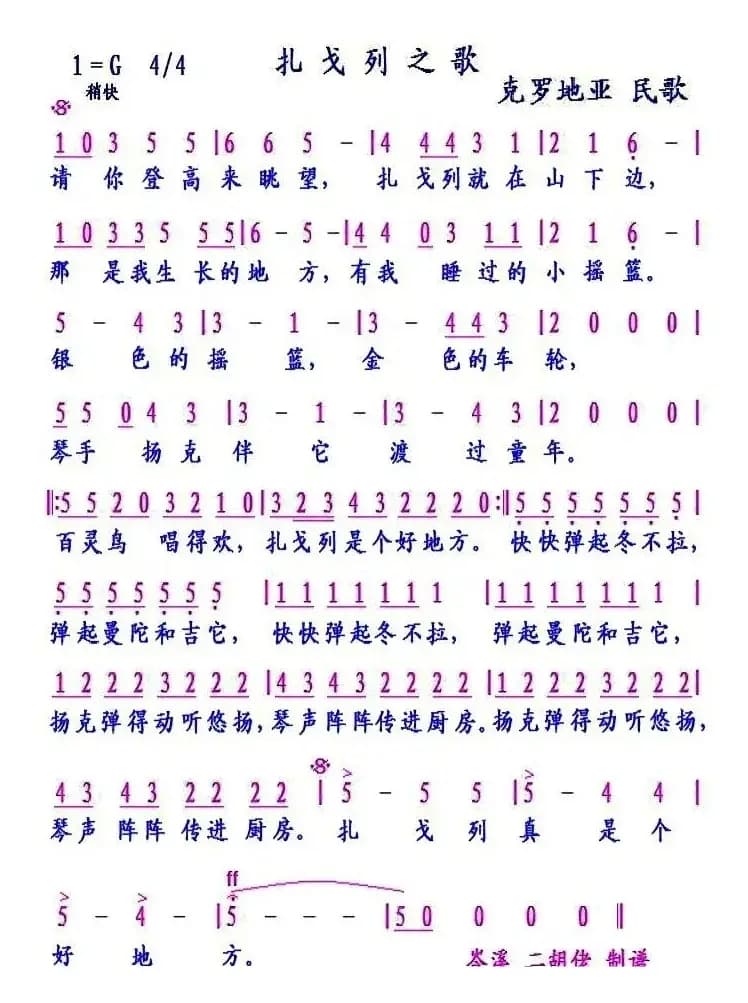 1=G 4/4 扎戈列之歌
稍快 克罗地亚 民歌
1 0 3 5 5 | 6 6 5 - | 4 4 4 3 1 | 2 1 6 - |
请你登高来眺望, 扎戈列就在山下边,
1 0 3 3 5 5 5 | 6 - 5 - | 4 4 0 3 1 1 | 2 1 6 - |
那是我生长的地方, 有我睡过的小摇篮。
5 - 4 3 | 3 - 1 - | 3 - 4 4 3 | 2 0 0 0 |
银色的摇篮, 金色的车轮,
5 5 0 4 3 | 3 - 1 - | 3 - 4 3 | 2 0 0 0 |
琴手扬克伴它渡过童年。
‖: 5 5 2 0 3 2 1 0 | 3 2 3 4 3 2 2 2 0 :‖ 5 5 5 5 5 5 5 |
百灵鸟唱得欢, 扎戈列是个好地方。快快弹起冬不拉,
5 5 5 5 5 5 5 | 1 1 1 1 1 1 1 | 1 1 1 1 1 1 1 |
弹起曼陀和吉它, 快快弹起冬不拉, 弹起曼陀和吉它,
1 2 2 2 3 2 2 2 | 4 3 4 3 2 2 2 2 | 1 2 2 2 3 2 2 2 |
扬克弹得动听悠扬, 琴声阵阵传进厨房。扬克弹得动听悠扬,
4 3 4 3 2 2 2 2 | 5 - 5 5 | 5 - 4 4 |
琴声阵阵传进厨房。扎戈列真是个
ff
5 - 4 - | 5 - - - | 5 0 0 0 0 ‖
好地方。 岑溪 二胡佬 制谱